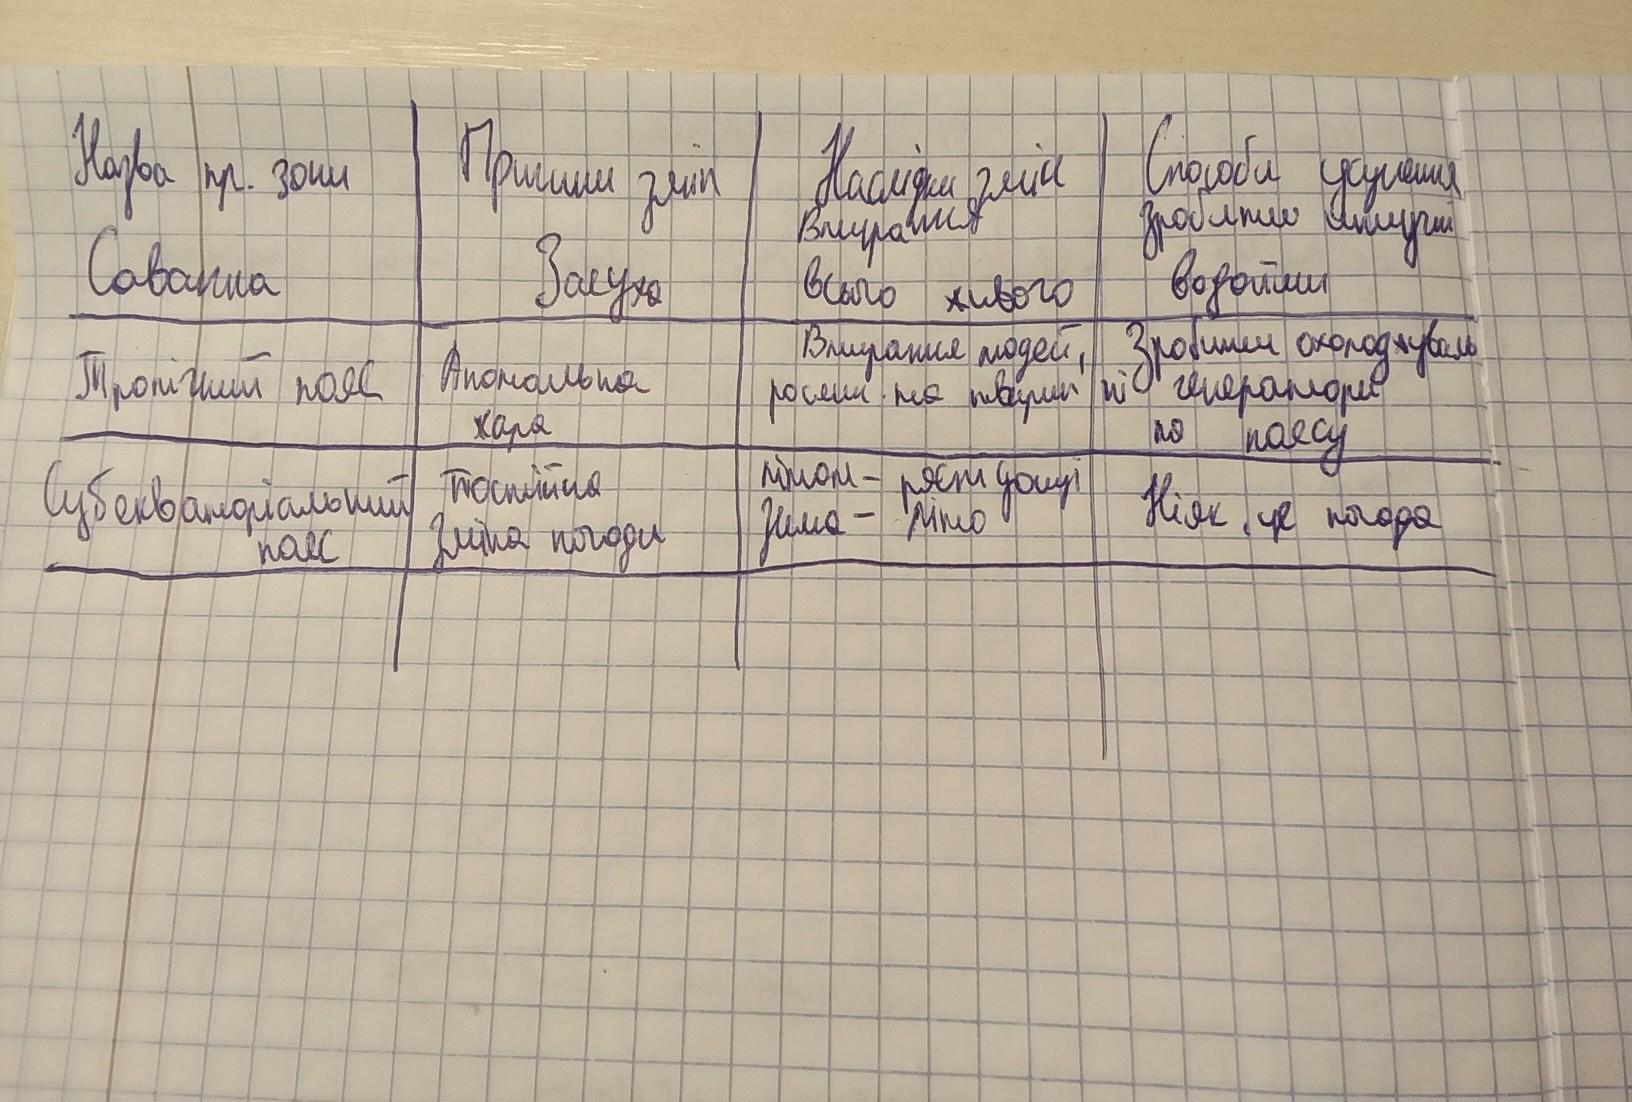 Назва пр. зони
Причини змін
Наслідки змін
Способи усунення
Саванна
Засуха
Вмирання
всього живого
Зробити штучні
водойми
Тропічний пояс
Аномальна
жара
Вмирання людей,
рослин та тварин
Зробити охолоджуваль
ні генератори
по поясу
Субекваторіальний
пояс
Постійна
зміна погоди
літом – рясні дощі
Зима – літо
Ніяк, це погода